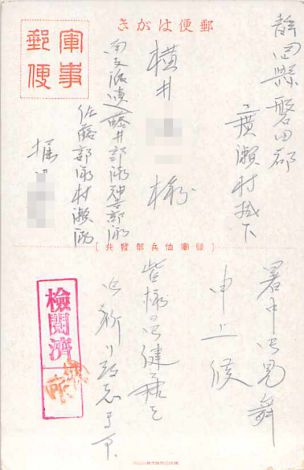 郵便はがき
軍事
郵便
静岡縣磐田郡
廣瀬村掛下
横井
様
南支派遣藤井部隊神宮部隊
佐藤部隊村瀬隊
堀
検閲済
暑中御見舞
申上候
皆様の御健康を
御祈り致します